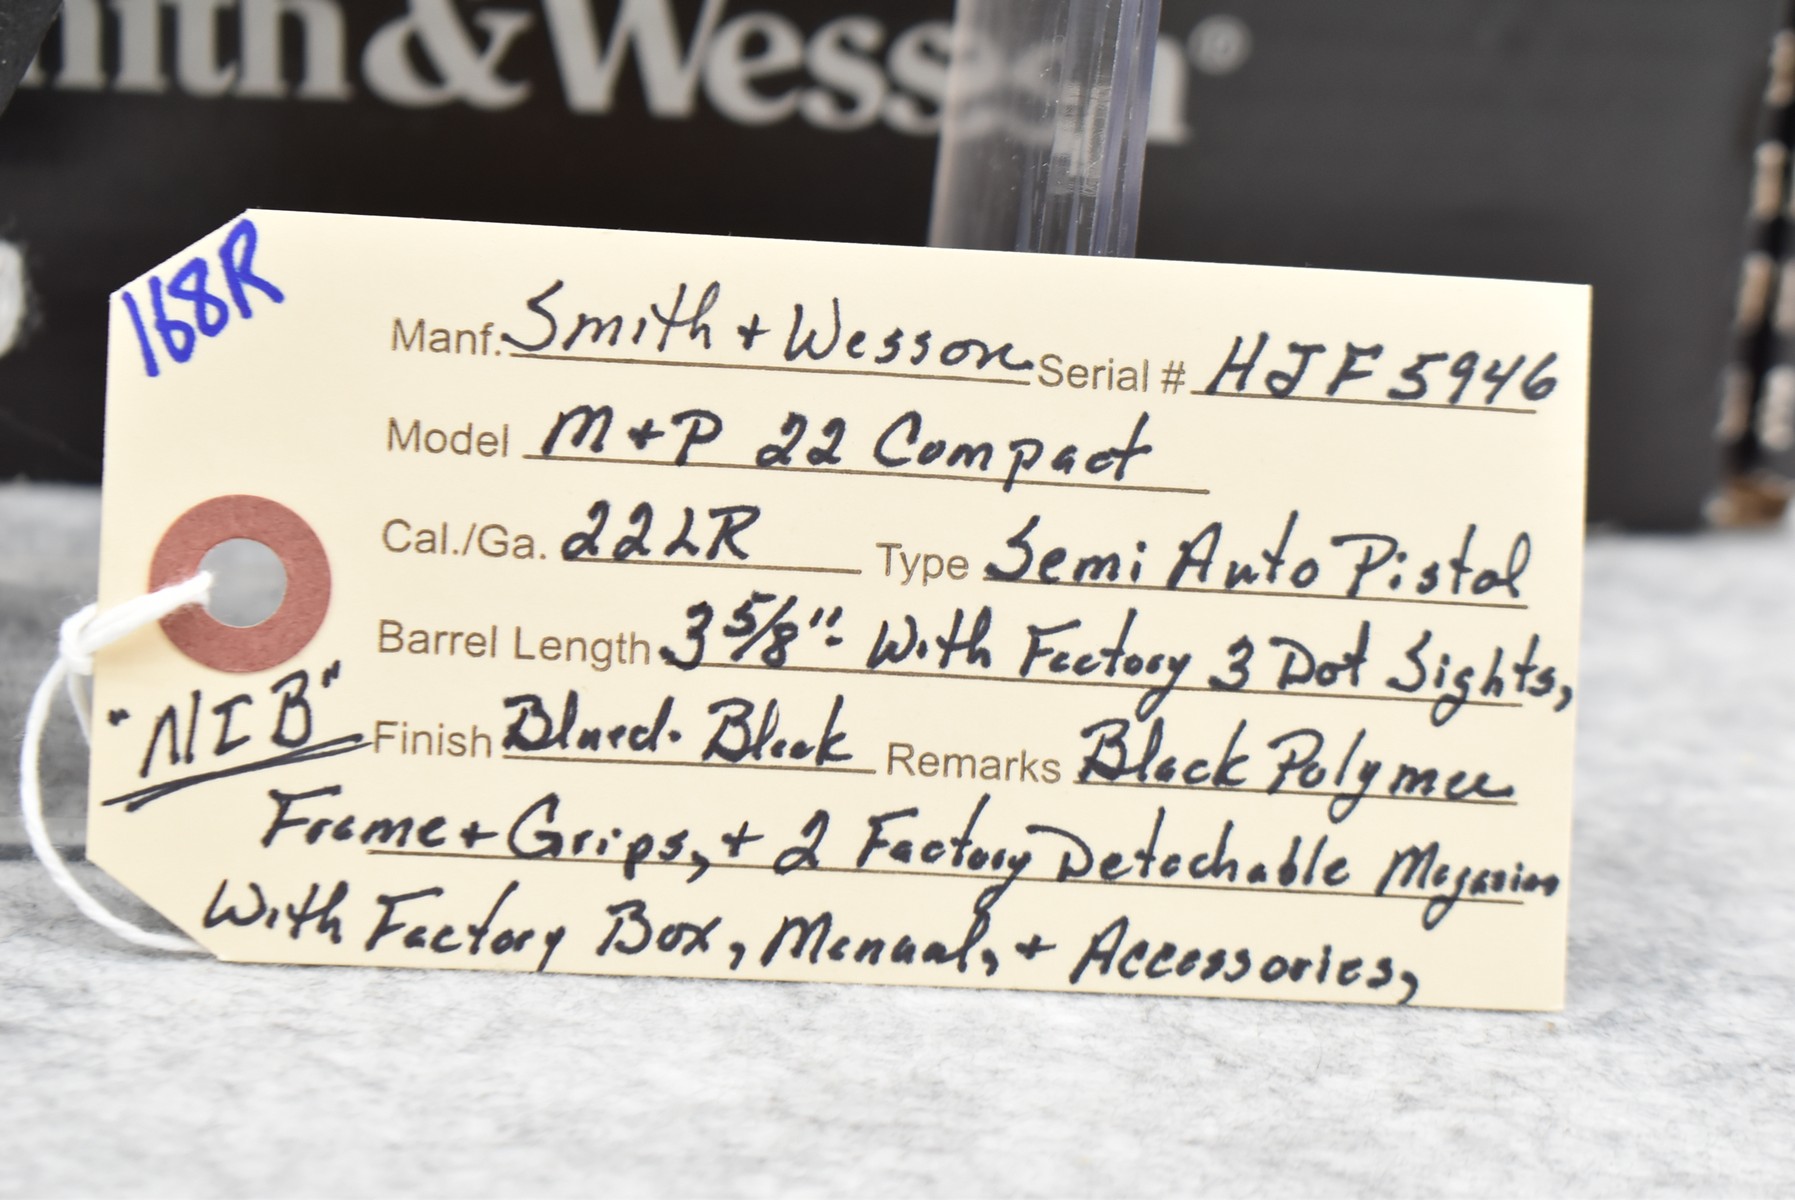 mith & Wesson®
168R
Manf. Smith + Wesson Serial # HJF5946
Model M+P 22 Compact
Cal./Ga. 22LR Type Semi Auto Pistol
Barrel Length 3 5/8": With Factory 3 Dot Sights,
"NIB" Finish Blued. Black Remarks Black Polymer
Frame + Grips, + 2 Factory Detachable Magazines
With Factory Box, Manual, + Accessories,